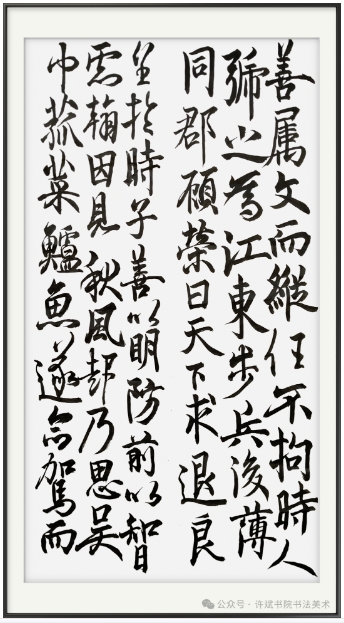 善属文而縱任不拘時人
號之為江東步兵後薄
同郡顧榮曰天下求退良
望於時子善以明防前以智
慮翰因見秋風起乃思吴
中菰菜鱸魚遂命駕而
公众号·许斌书院书法美术